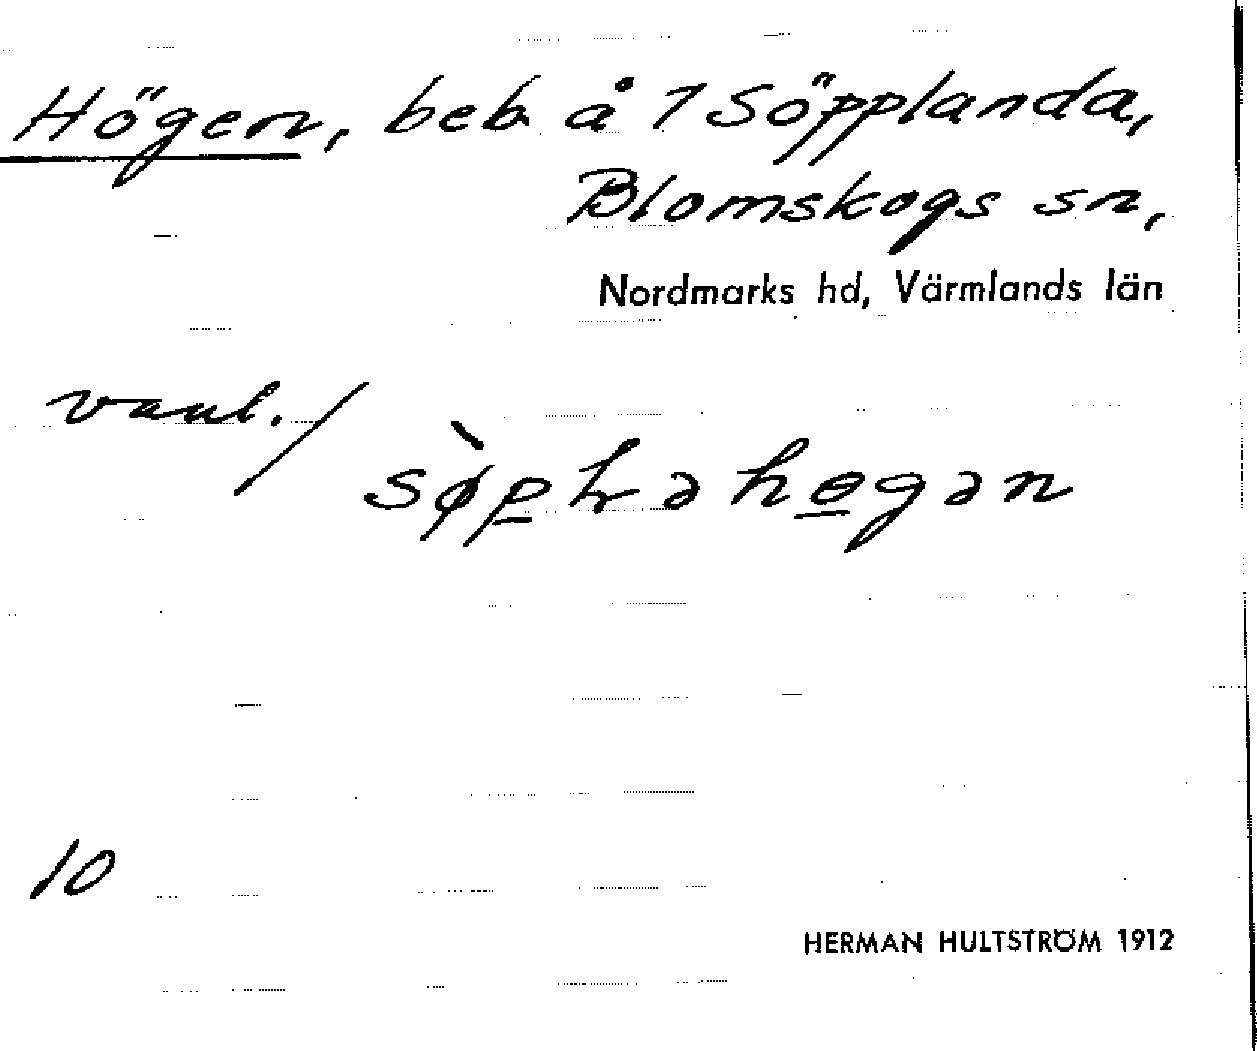 Högen, beb. å 1 Söpplanda,
Blomskogs sn,
Nordmarks hd, Värmlands län
vanl./
10
HERMAN HULTSTRÖM 1912